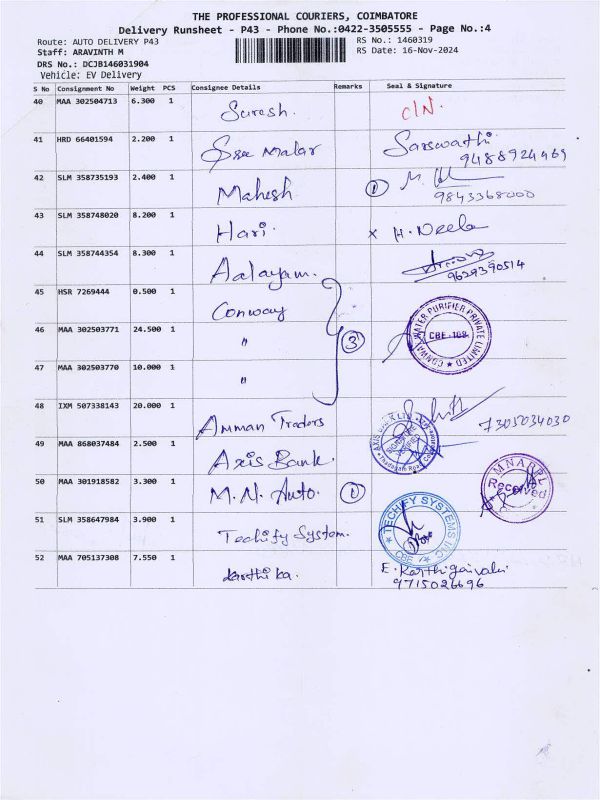 THE PROFESSIONAL COURIERS, COIMBATORE
Delivery Runsheet - P43 - Phone No.:0422-3505555 - Page No.:4
Route: AUTO DELIVERY P43 RS No.: 1460319
Staff: ARAVINTH M RS Date: 16-Nov-2024
DRS No.: DCJB146031904
Vehicle: EV Delivery
S No Consignment No Weight PCS Consignee Details Remarks Seal & Signature
40 MAA 302504713 6.300 1 Suresh. C/N.
41 HRD 66401594 2.200 1 Sree Malar Sarswathi
9488924469
42 SLM 358735193 2.400 1 Mahesh 1
9843368000
43 SLM 358748020 8.200 1 Hari. x H. Neela
44 SLM 358744354 8.300 1 Aalayam.
9629390514
45 HSR 7269444 0.500 1 Conway
46 MAA 302503771 24.500 1 " 3 CONWAY WATER PURIFIER PRIVATE LIMITED CBE-108
47 MAA 302503770 10.000 1 "
48 IXM 507338143 20.000 1 Amman Traders 7305034030
49 MAA 868037484 2.500 1 Axis Bank. AXIS BANK LTD
50 MAA 301918582 3.300 1 M.N. Auto. 1 MNARPL Received
51 SLM 358647984 3.900 1 Techify System. TECHIFY SYSTEMS INC CBE
52 MAA 705137308 7.550 1 karthika. E. Karthigaivalli
9715026696